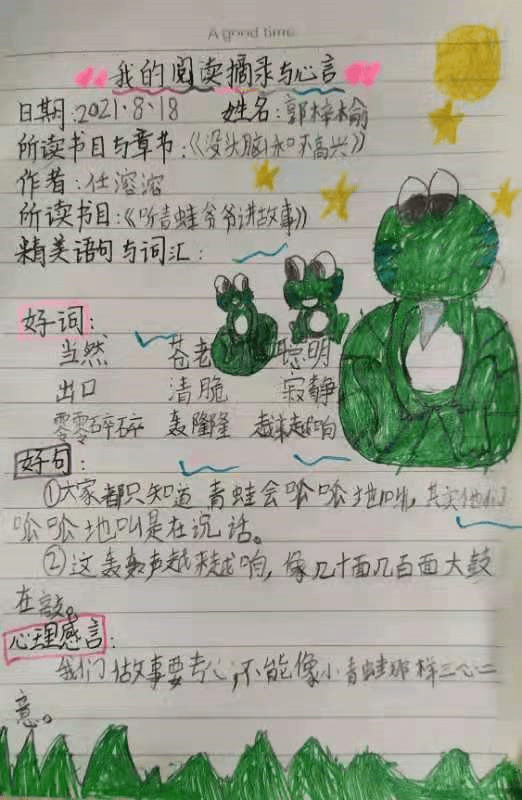 A good time
我的阅读摘录与心言
日期:2021.8.18 姓名:郭梓榆
所读书目与章节:《没头脑和不高兴》
作者:任溶溶
所读书目:《听青蛙爷爷讲故事》
精美语句与词汇:
好词:
当然 苍老 聪明
出口 清脆 寂静
零零碎碎 轰隆隆 越来越响
好句:
①大家都只知道青蛙会呱呱地叫,其实他们
呱呱地叫是在说话。
②这轰轰声越来越响,像几十面几百面大鼓
在敲。
心理感言:
我们做事要专心,不能像小青蛙那样三心二
意。